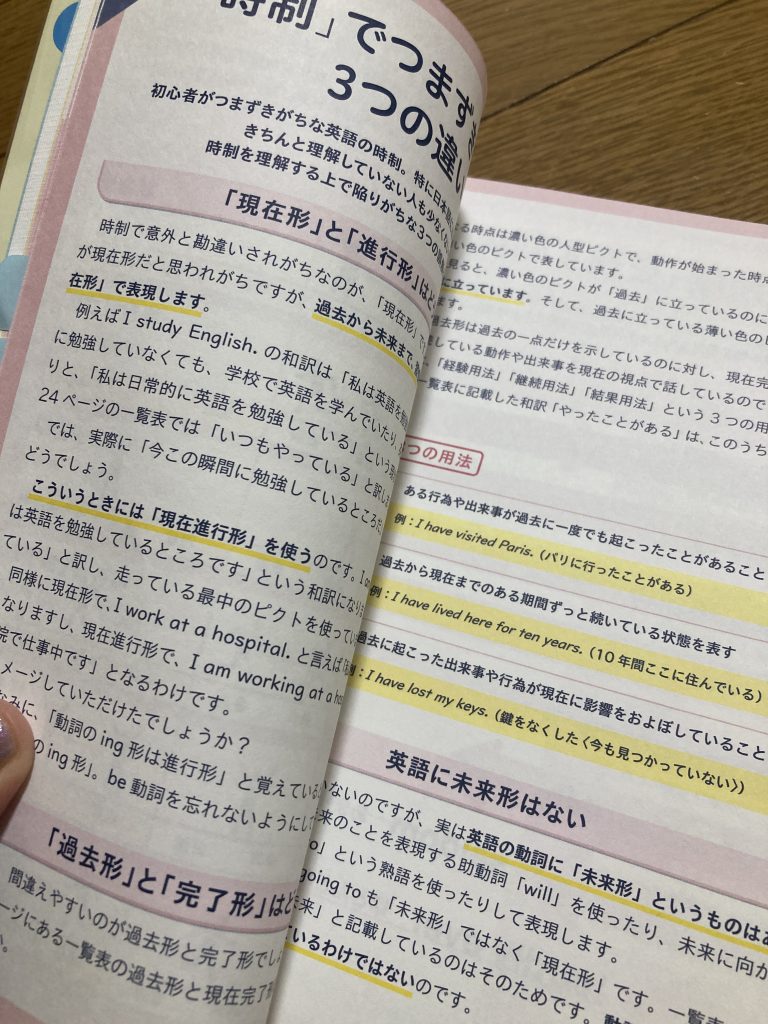 時制」でつまず
3つの違い
初心者がつまずきがちな英語の時制。特に日本語
きちんと理解していない人も少なくな
時制を理解する上で陥りがちな3つの
「現在形」と「進行形」はど
時制で意外と勘違いされがちなのが、「現在形」で
が現在形だと思われがちですが、過去から未来まで、
在形」で表現します。
例えばI study English. の和訳は「私は英語を
に勉強していなくても、学校で英語を学んでいたり、
りと、「私は日常的に英語を勉強している」という
24ページの一覧表では「いつもやっている」と訳しま
では、実際に「今この瞬間に勉強しているところだ
どうでしょう。
こういうときには「現在進行形」を使うのです。I am
は英語を勉強しているところです」という和訳になりま
ている」と訳し、走っている最中のピクトを使ってい
同様に現在形で、I work at a hospital. と言えば
なりますし、現在進行形で、I am working at a ho
院で仕事中です」となるわけです。
メージしていただけたでしょうか？
なみに、「動詞の ing 形は進行形」と覚えている
の ing 形」。be 動詞を忘れないようにして
「過去形」と「完了形」はど
間違えやすいのが過去形と完了形でし
ページにある一覧表の過去形と現在完了形
る時点は濃い色の人型ピクトで、動作が始まった時点
い色のピクトで表しています。
見ると、濃い色のピクトが「過去」に立っているのに
に立っています。そして、過去に立っている薄い色のピ
ます。
過去形は過去の一点だけを示しているのに対し、現在完
している動作や出来事を現在の視点で話しているので
、「経験用法」「継続用法」「結果用法」という3つの用
一覧表に記載した和訳「やったことがある」は、このうち
つの用法
ある行為や出来事が過去に一度でも起こったことがあること
例：I have visited Paris.（パリに行ったことがある）
過去から現在までのある期間ずっと続いている状態を表す
例：I have lived here for ten years.（10年間ここに住んでいる）
過去に起こった出来事や行為が現在に影響をおよぼしていること
例：I have lost my keys.（鍵をなくした〈今も見つかっていない〉）
英語に未来形はない
いないのですが、実は英語の動詞に「未来形」というものはあ
来のことを表現する助動詞「will」を使ったり、未来に向か
o」という熟語を使ったりして表現します。
going to も「未来形」ではなく「現在形」です。一覧表
来」と記載しているのはそのためです。動
ているわけではないのです。